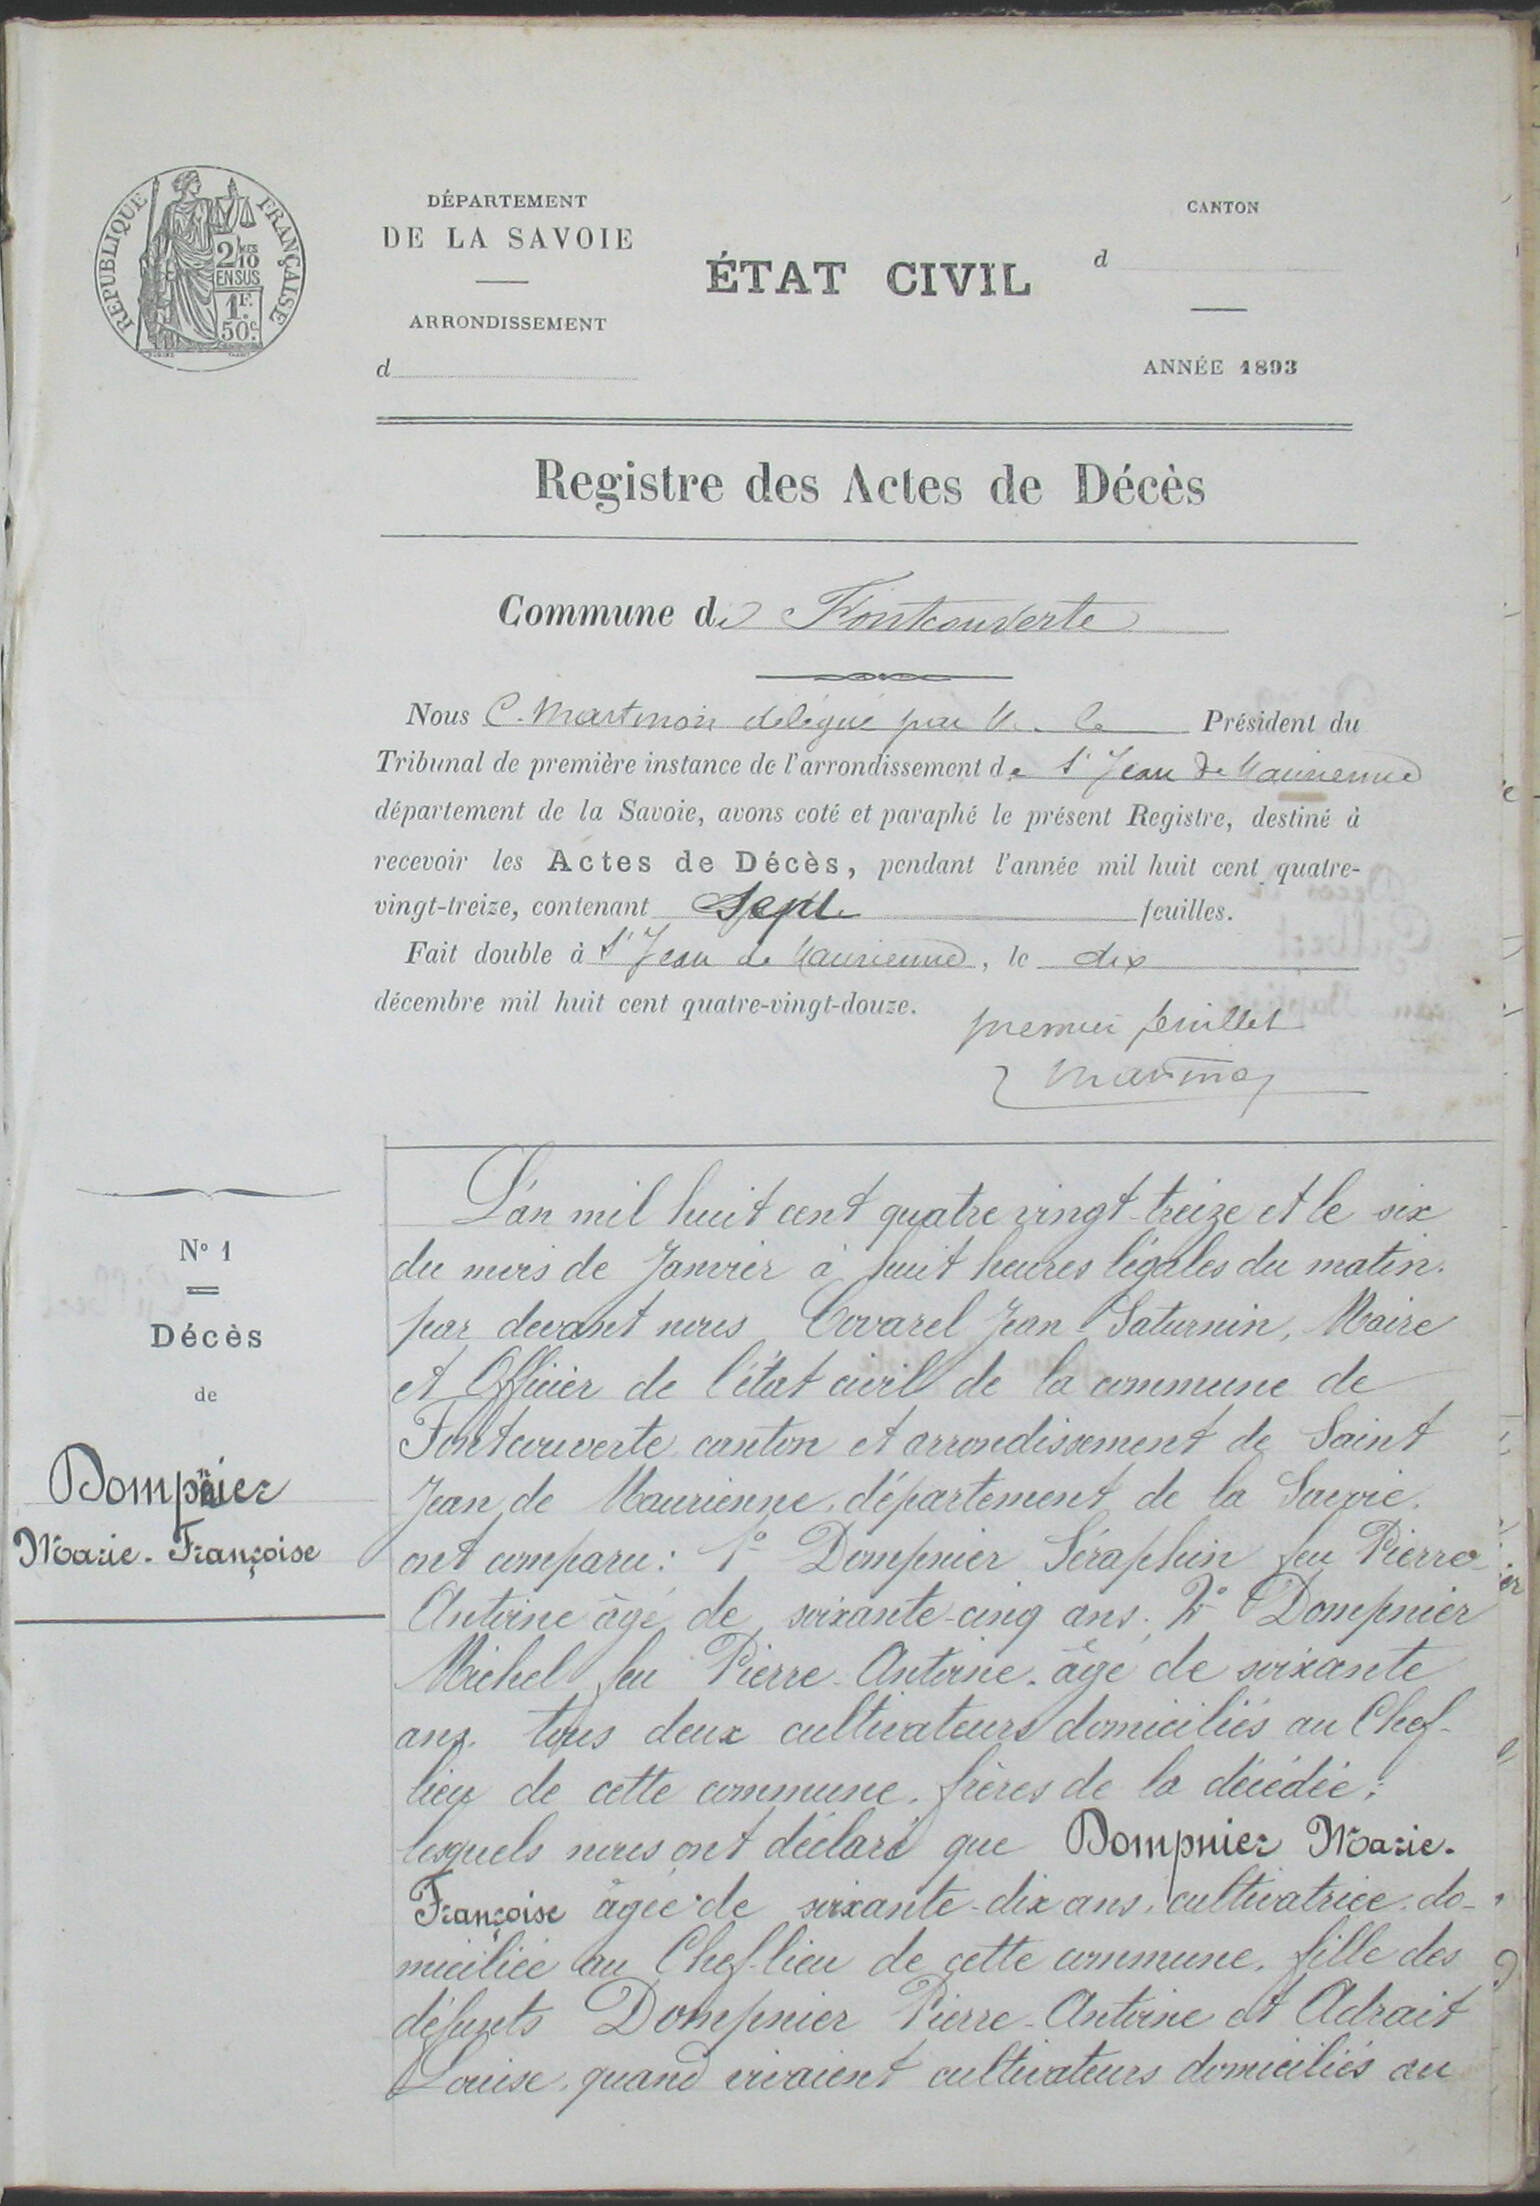 RÉPUBLIQUE FRANÇAISE
2/10 EN SUS
1F. 50c.
DÉPARTEMENT
DE LA SAVOIE
ARRONDISSEMENT
d
ÉTAT CIVIL
CANTON
d
ANNÉE 1893
Registre des Actes de Décès
Commune de Fontcouverte
Nous C. Martinon délégué par M. le Président du
Tribunal de première instance de l'arrondissement de St Jean de Maurienne
département de la Savoie, avons coté et paraphé le présent Registre, destiné à
recevoir les Actes de Décès, pendant l'année mil huit cent quatre-
vingt-treize, contenant Sept feuilles.
Fait double à St Jean de Maurienne, le dix
décembre mil huit cent quatre-vingt-douze.
premier feuillet
N° 1
Décès
de
Dompnier
Marie-Françoise
L'an mil huit cent quatre vingt-treize et le six
du mois de Janvier à huit heures légales du matin.
par devant nous Covarel Jean-Saturnin, Maire
et Officier de l'état civil de la commune de
Fontcouverte canton et arrondissement de Saint
Jean de Maurienne, département de la Savoie.
ont comparu: 1° Dompnier Séraphin feu Pierre-
Antoine âgé de soixante-cinq ans; 2° Dompnier
Michel feu Pierre-Antoine, âgé de soixante
ans. tous deux cultivateurs domiciliés au Chef-
lieu de cette commune, frères de la décédée;
lesquels nous ont déclaré que Dompnier Marie-
Françoise âgée de soixante-dix ans, cultivatrice, do-
miciliée au Chef-lieu de cette commune, fille des
défunts Dompnier Pierre-Antoine et Adrait
Louise, quand vivaient cultivateurs domiciliés au